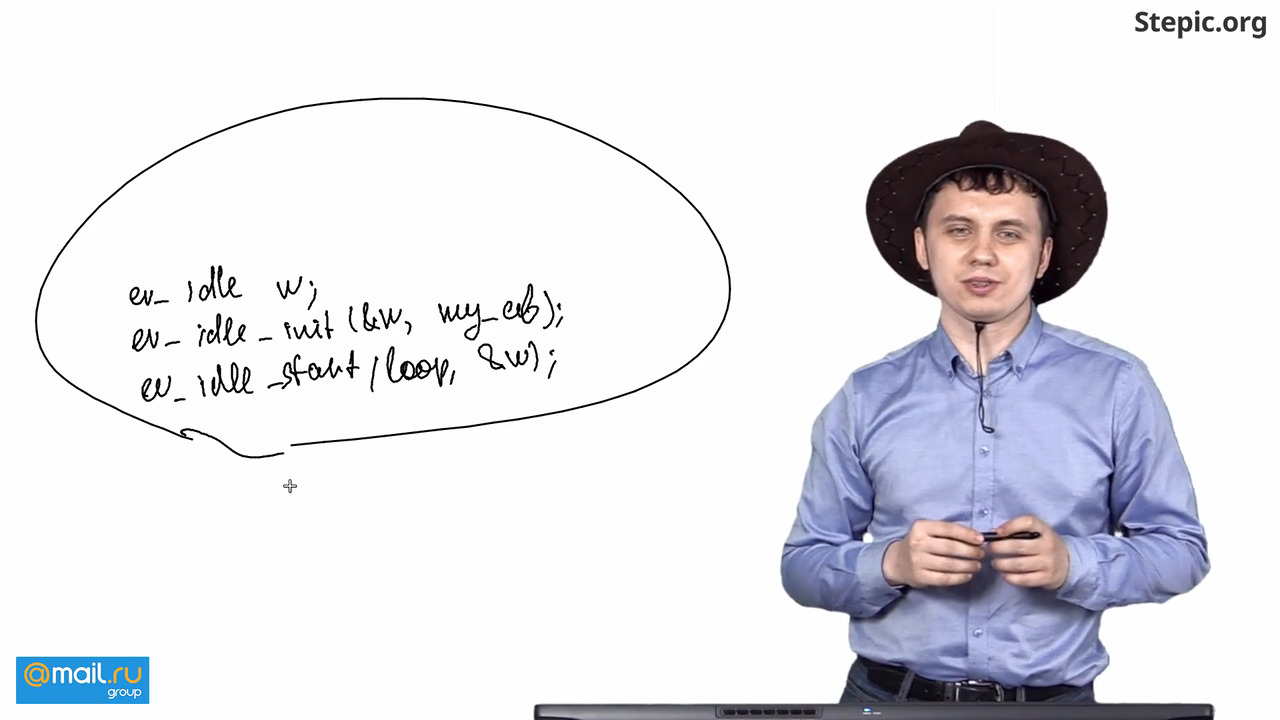 Stepic.org
ev_idle w;
ev_idle_init (&w, my_cb);
ev_idle_start (loop, &w);
@mail.ru
group